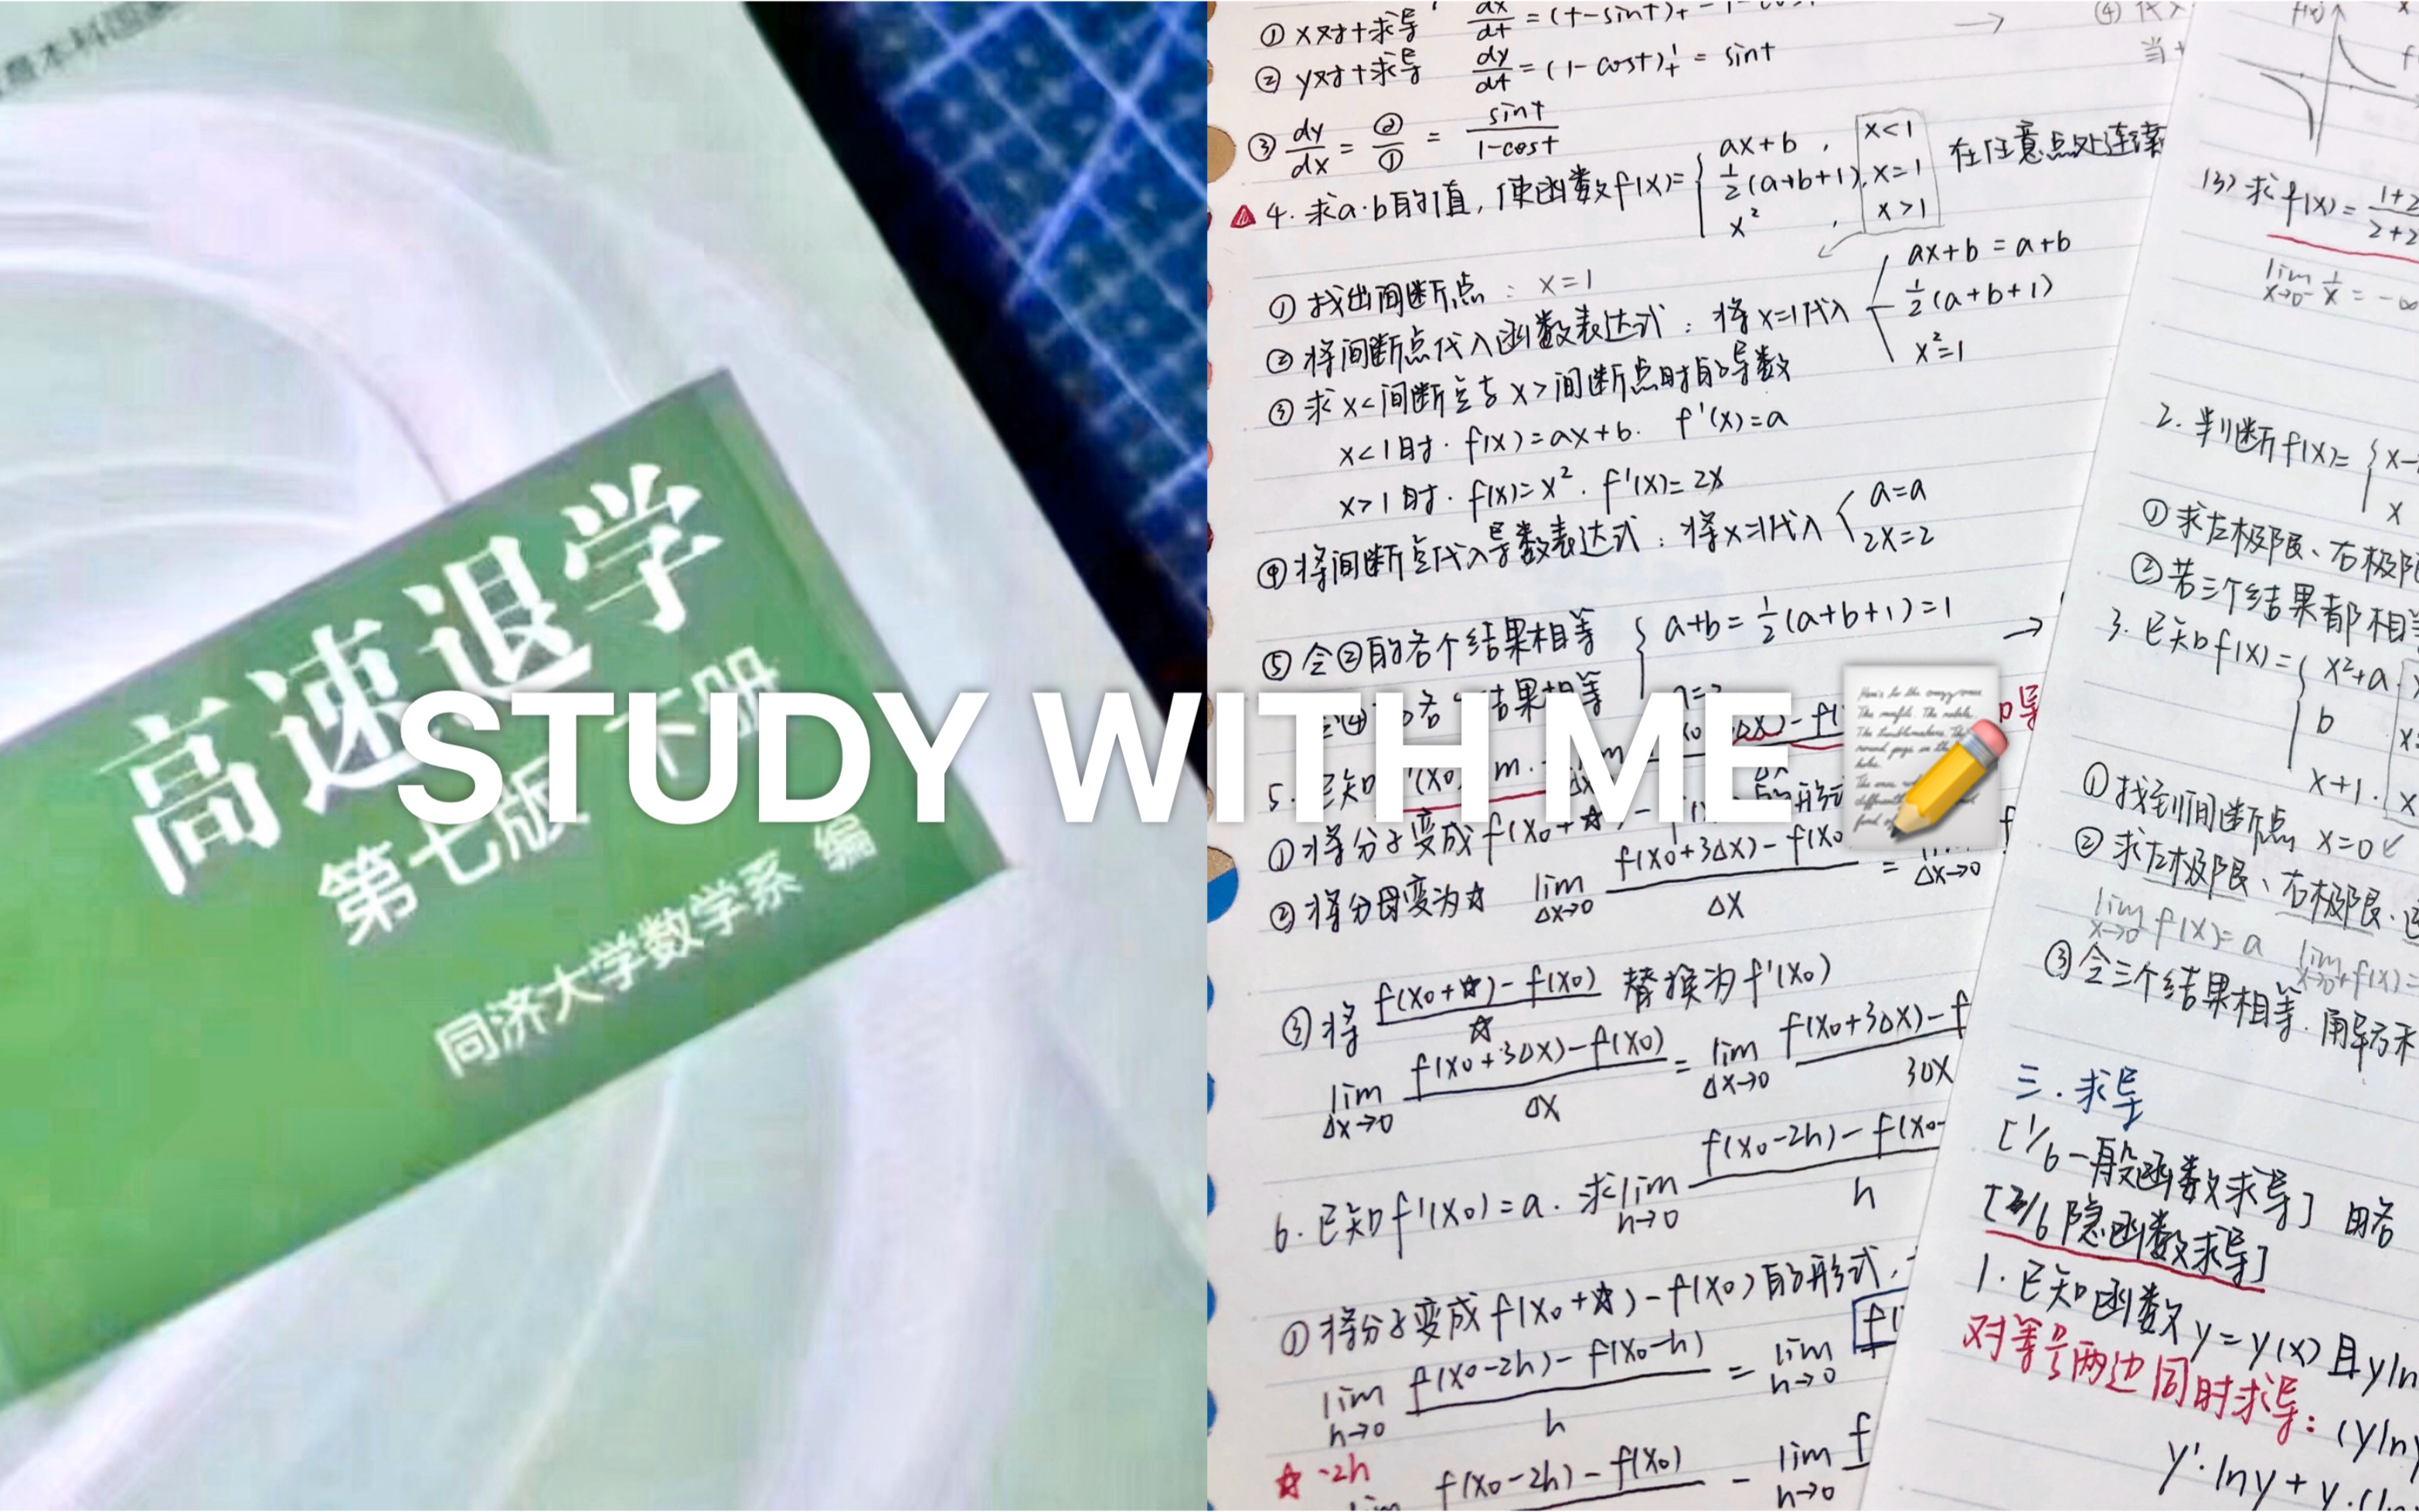 高速退学
第七版 下册
同济大学数学系 编
STUDY WITH ME
① x对t求导 dx/dt = (t-sint)
② y对t求导 dy/dt = (1-cost)'t = sint
③ dy/dx = ②/① = sint/1-cost
4. 求a.b的值, 使函数f(x)= { ax+b, x<1
1/2(a+b+1), x=1 在任意点处连续
x², x>1
① 找出间断点: x=1
② 将间断点代入函数表达式: 将x=1代入 { ax+b=a+b
1/2(a+b+1)
x²=1
③ 求x<间断点与x>间断点时的导数
x<1时. f(x)=ax+b. f'(x)=a
x>1时. f(x)=x². f'(x)=2x
④ 将间断点代入导数表达式: 将x=1代入 { a=a
2x=2
⑤ 令②的各个结果相等 { a+b=1/2(a+b+1)=1
结果相等
5. 已知
① 将分子变成f(x0+☆)- 的形式
② 将分母变为☆ lim Δx→0 f(x0+3Δx)-f(x0 / Δx = Δx→0
③ 将 f(x0+☆)-f(x0)/☆ 替换为f'(x0)
lim Δx→0 f(x0+3Δx)-f(x0)/Δx = lim Δx→0 f(x0+3Δx)-f / 3Δx
6. 已知f'(x0)=a. 求lim h→0 f(x0-2h)-f(x0- / h
① 将分子变成f(x0+☆)-f(x0)的形式,
lim h→0 f(x0-2h)-f(x0-h)/h = lim h→0
☆ -2h
f(x0-2h)-f(x0) - lim h→0 f
④ 代入
当t
f(x)
(3) 求f(x)= 1+2/2+2
lim x→0⁻ 1/x = -∞
2. 判断f(x)= { x-
x
① 求左极限、右极限
② 若三个结果都相等
3. 已知f(x)= { x²+a.
b
x+1.
① 找到间断点 x=0
② 求左极限、右极限、
lim x→0⁻ f(x)=a lim x→0⁺ f(x)=
③ 令三个结果相等. 用解方禾
三. 求导
[1/6 一般函数求导] 略
[2/6 隐函数求导]
1. 已知函数y=y(x)且yln
对等号两边同时求导: (ylny
y'·lny+y·(ln